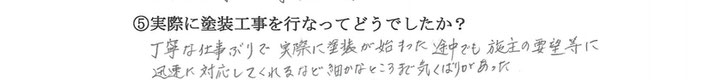 ⑤実際に塗装工事を行なってどうでしたか？
丁寧な仕事ぶりで実際に塗装が始まった途中でも施主の要望等に
迅速に対応してくれるなど細かなところまで気くばりがあった